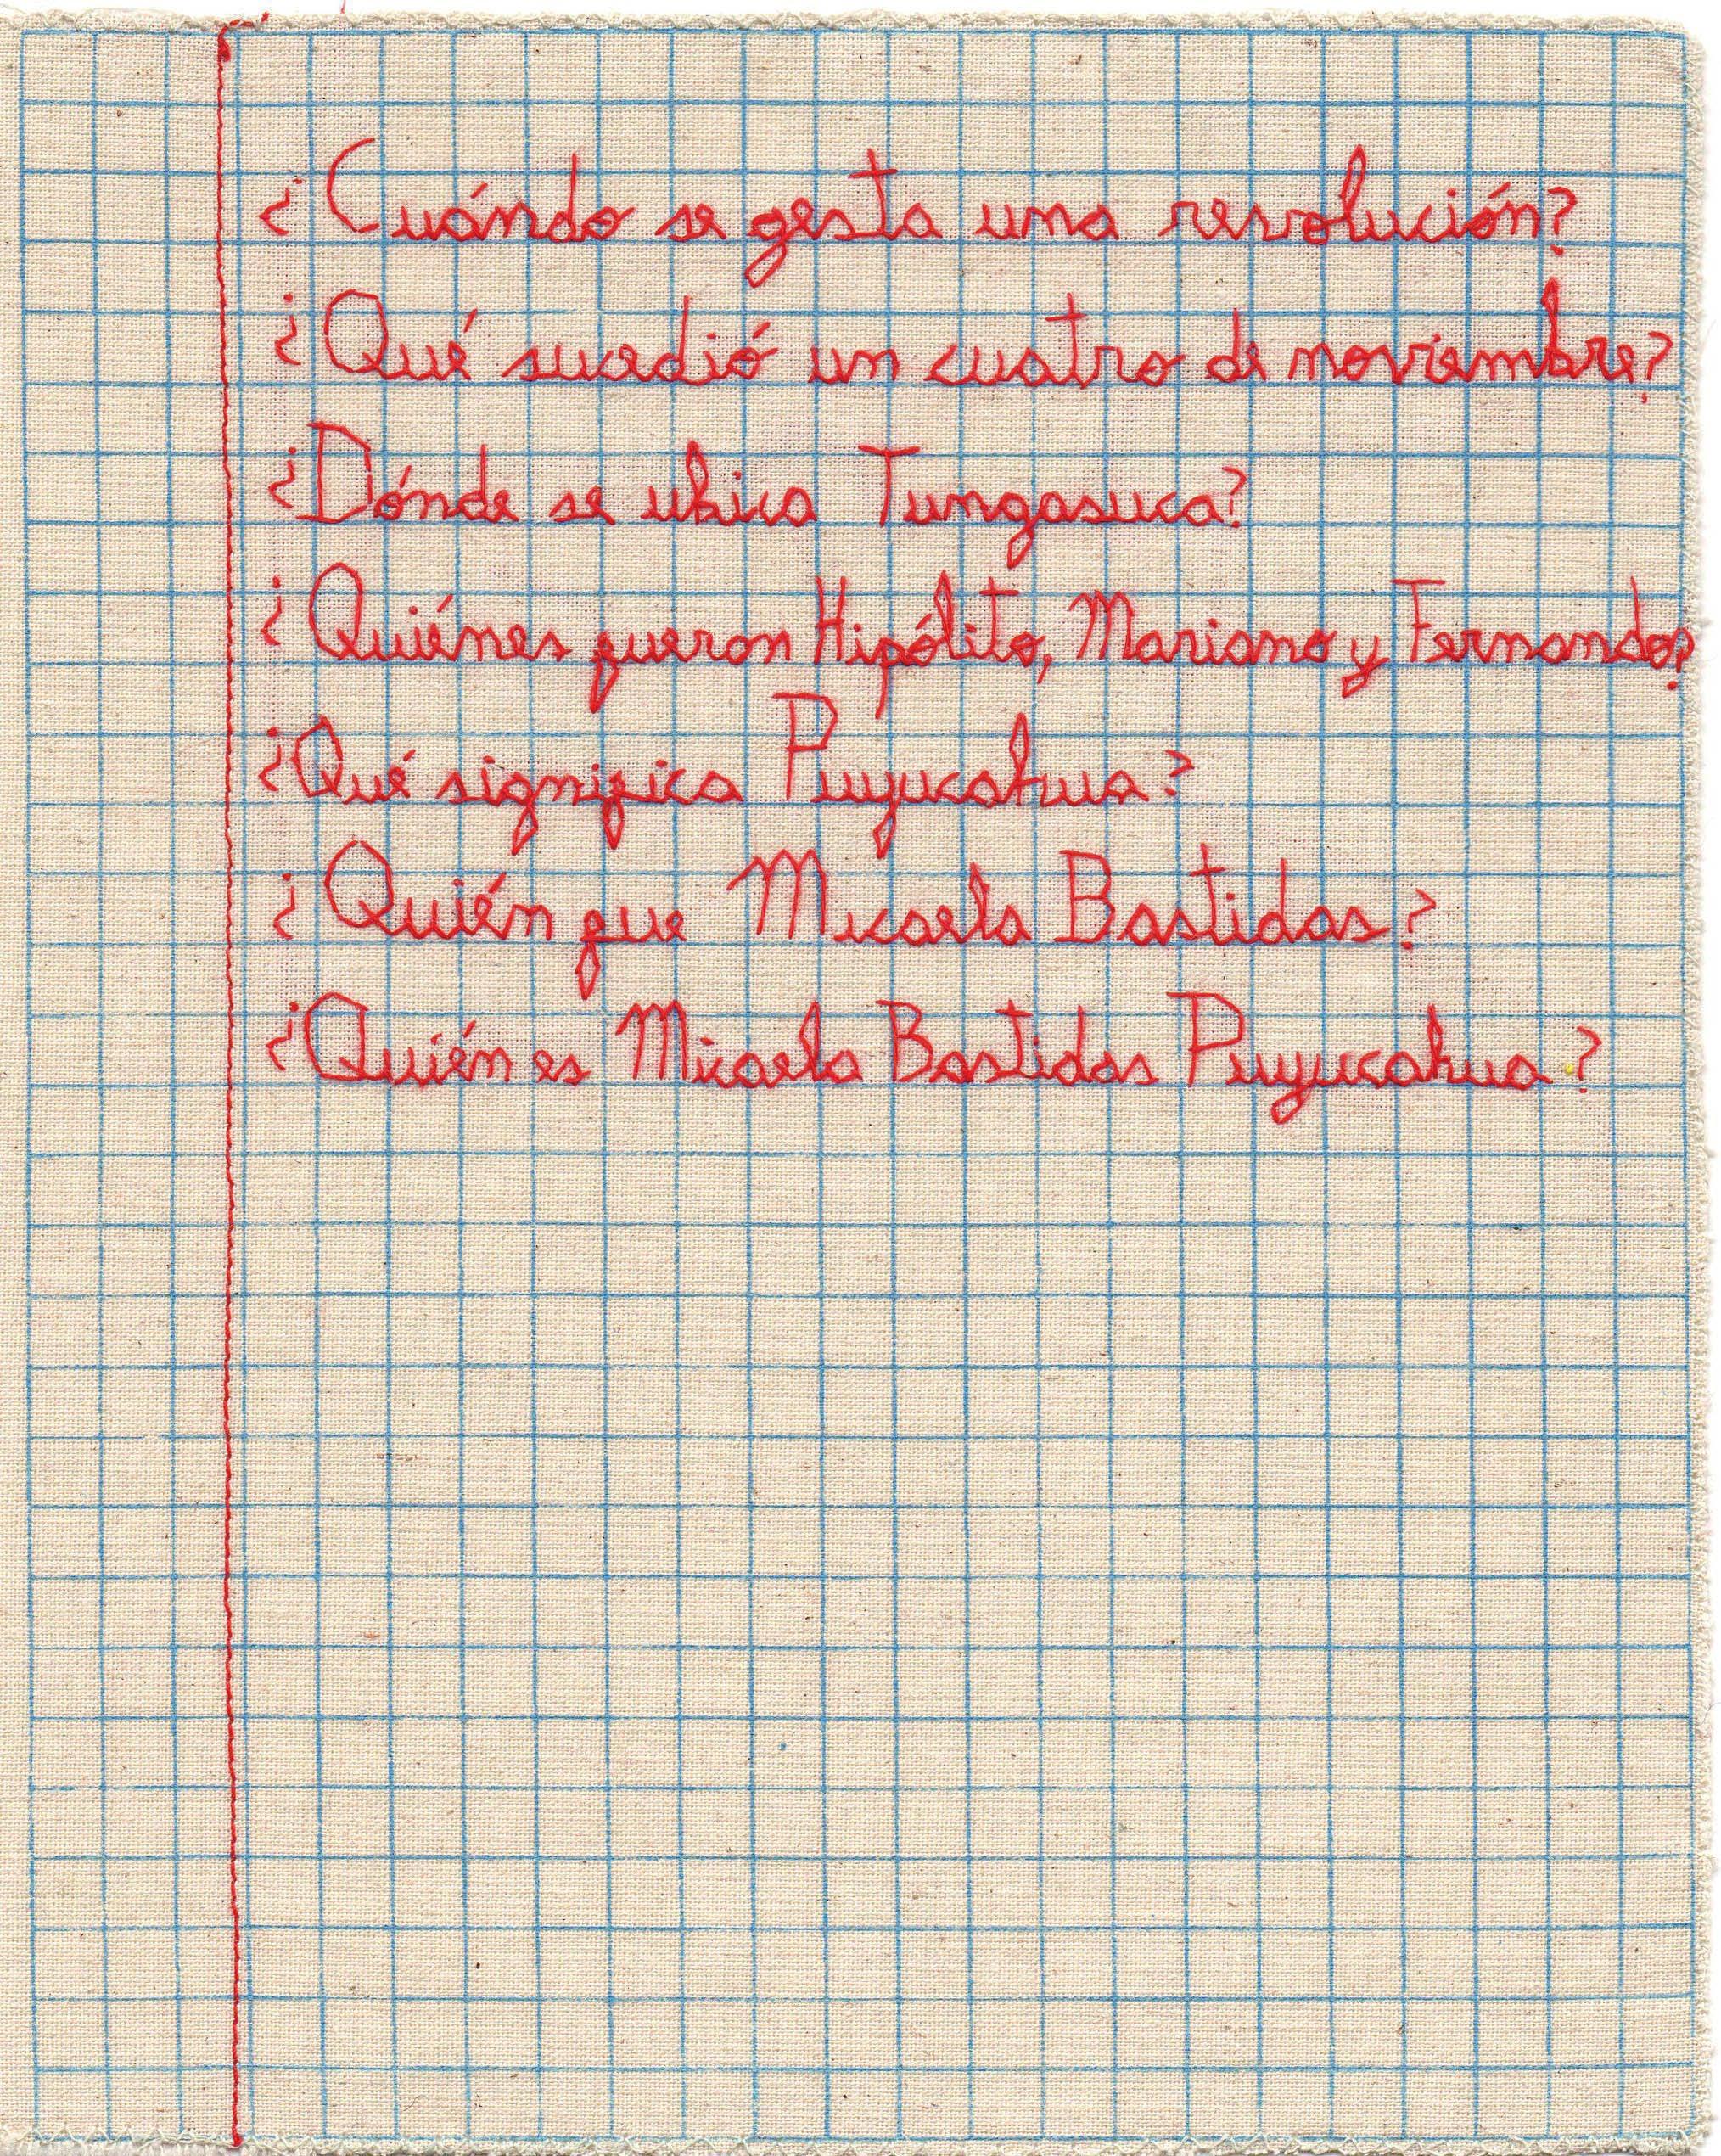 ¿Cuándo se gesta una revolución?
¿Qué sucedió un cuatro de noviembre?
¿Dónde se ubica Tungasuca?
¿Quiénes fueron Hipólito, Mariano y Fernando?
¿Qué significa Puyucahua?
¿Quién fue Micaela Bastidas?
¿Quién es Micaela Bastidas Puyucahua?